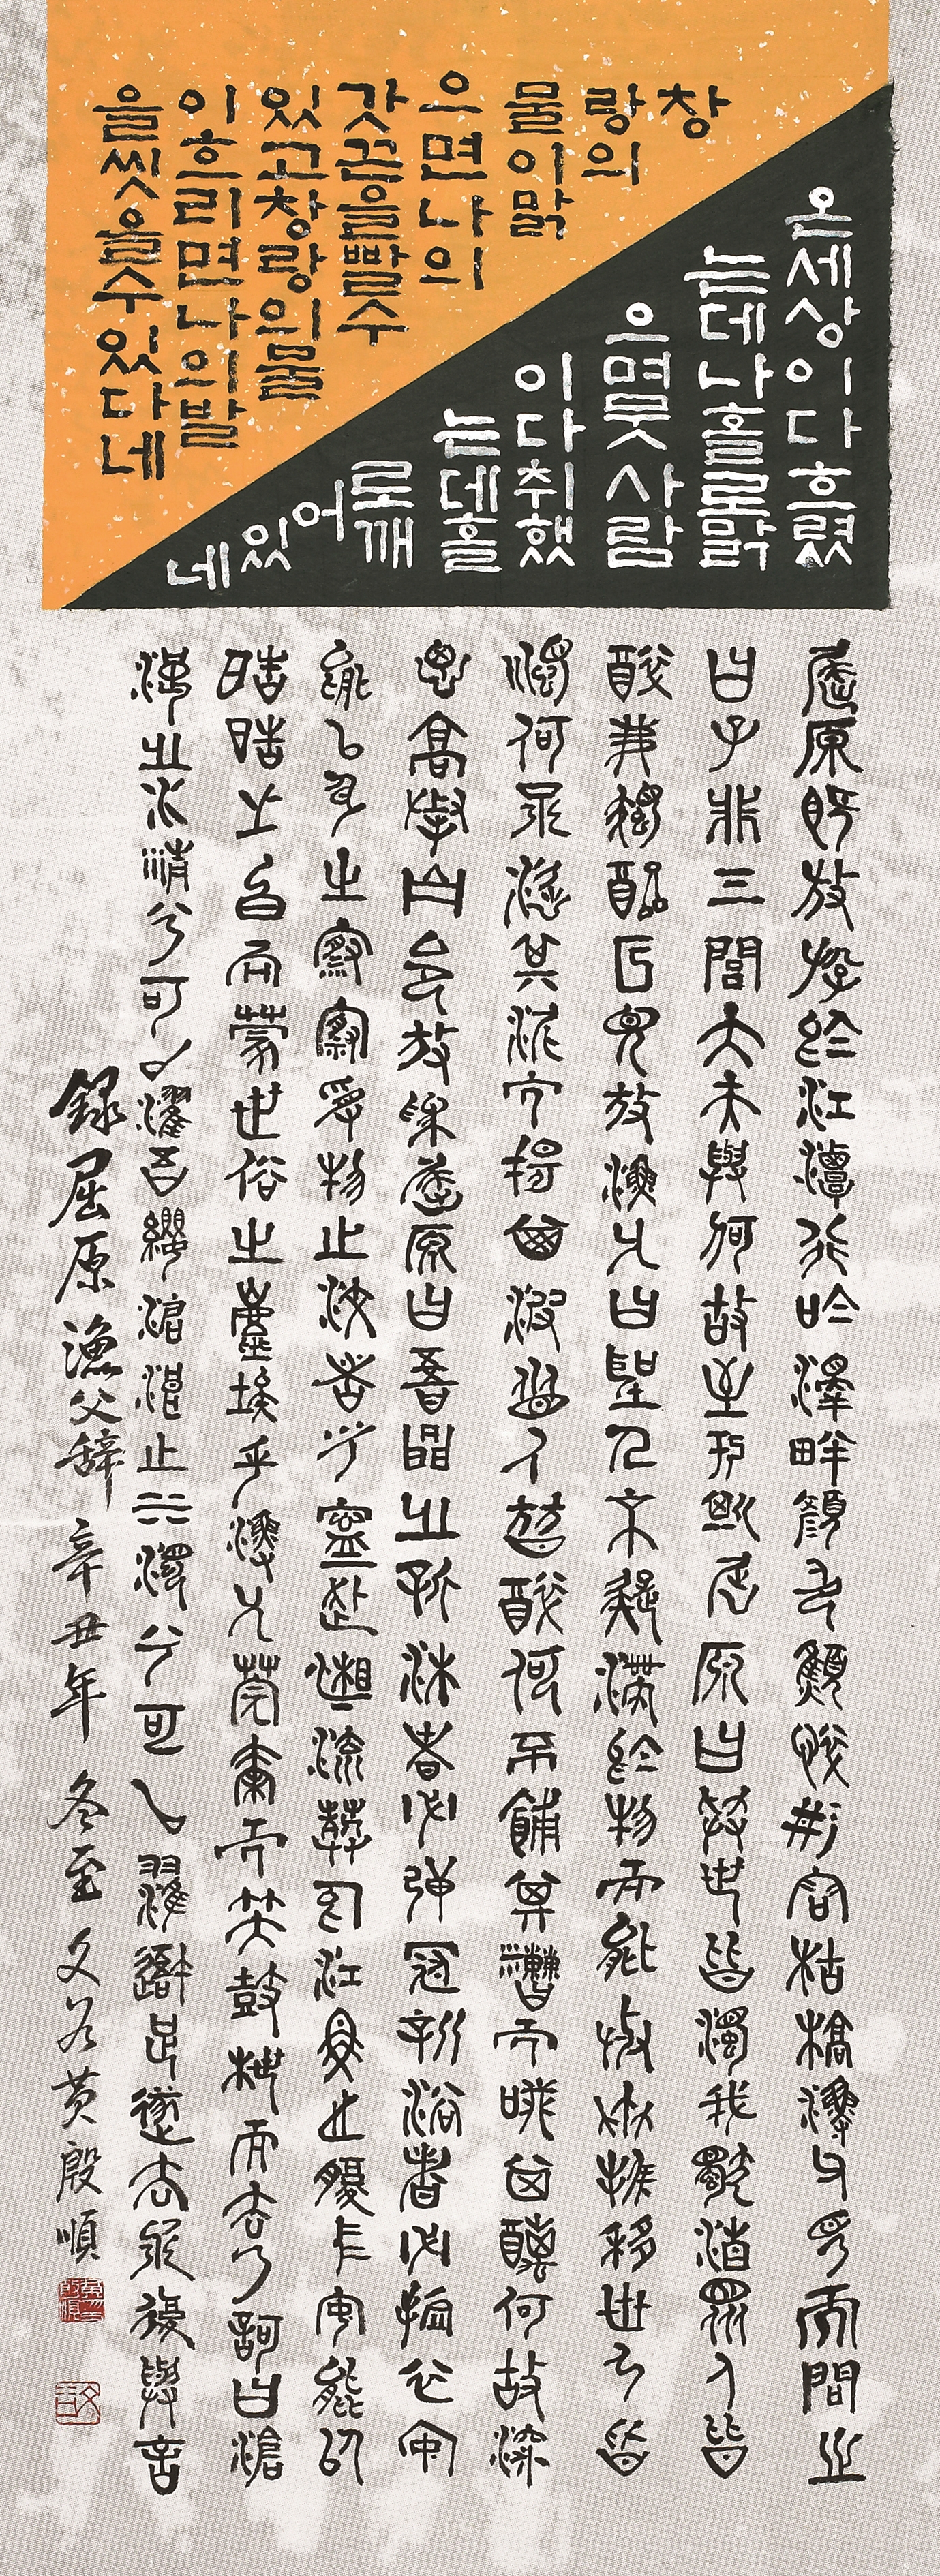 온세상이다흐렸
는데나홀로맑
으며뭇사람
이다취했
는데홀
로깨
어
있
네
창
랑의
물이맑
으면나의
갓끈을빨수
있고창랑의물
이흐리면나의발
을씻을수있다네
屈原旣放游於江潭行吟澤畔顔色憔悴形容枯槁漁父見而問之
曰子非三閭大夫與何故至於斯屈原曰擧世皆濁我獨淸衆人皆
醉我獨醒是以見放漁父曰聖人不凝滯於物而能與世推移世人皆
濁何不淈其泥而揚其波衆人皆醉何不餔其糟而歠其醨何故深
思高擧自令放爲屈原曰吾聞之新沐者必彈冠新浴者必振衣安
能以身之察察受物之汶者乎寧赴湘流葬於江魚之腹中安能以
皓皓之白而蒙世俗之塵埃乎漁父莞爾而笑鼓枻而去乃歌曰滄
浪之水淸兮可以濯吾纓滄浪之水濁兮可以濯吾足遂去不復與言
錄屈原漁父辭 辛丑年 冬至 黃殷順